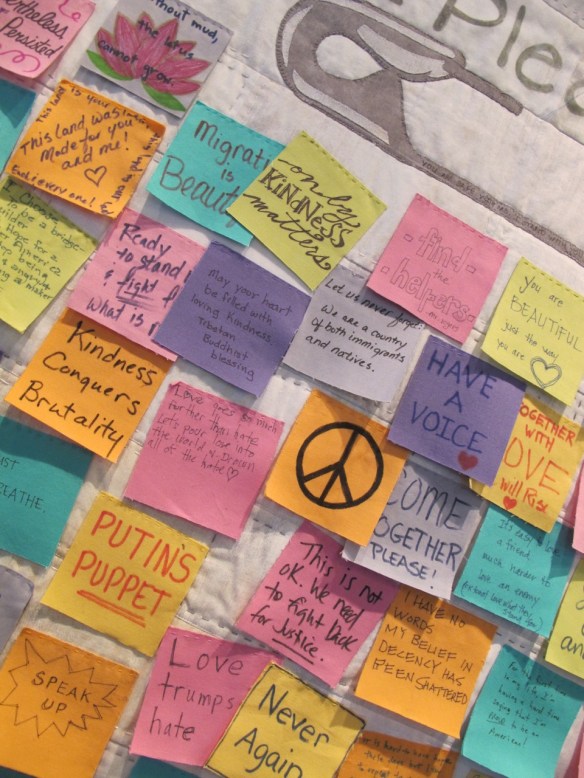 Persisted
without mud,
the lotus
cannot grow.
Plea
This land was
Made for you
and me!
Migrati
is
Beaut
only
KINDNESS
matters
- find -
- the -
helpers
you are
BEAUTIFUL
just the way
you are
I choose
to be a bridge
Ready
to stand
& fight
what is
May your heart
be filled with
loving kindness
Tibetan
Buddhist
blessing
Let us never forget!
We are a country
of both immigrants
and natives.
HAVE
A
VOICE
Kindness
Conquers
Brutality
Love goes so much
further than hate
Let's pour love into
the world & drown
all of the hate
TOGETHER
WITH
LOVE
Will Rise
COME
TOGETHER
PLEASE!
BREATHE.
PUTIN'S
PUPPET
This is not
OK. We need
to fight back
for Justice.
It's easy to love
a friend,
much harder to
love an enemy
I HAVE NO
WORDS
MY BELIEF IN
DECENCY HAS
BEEN SHATTERED
and
SPEAK
UP
Love
trumps
hate
Never
Again
having a hard time
saying that I'm
proud to be an
American!